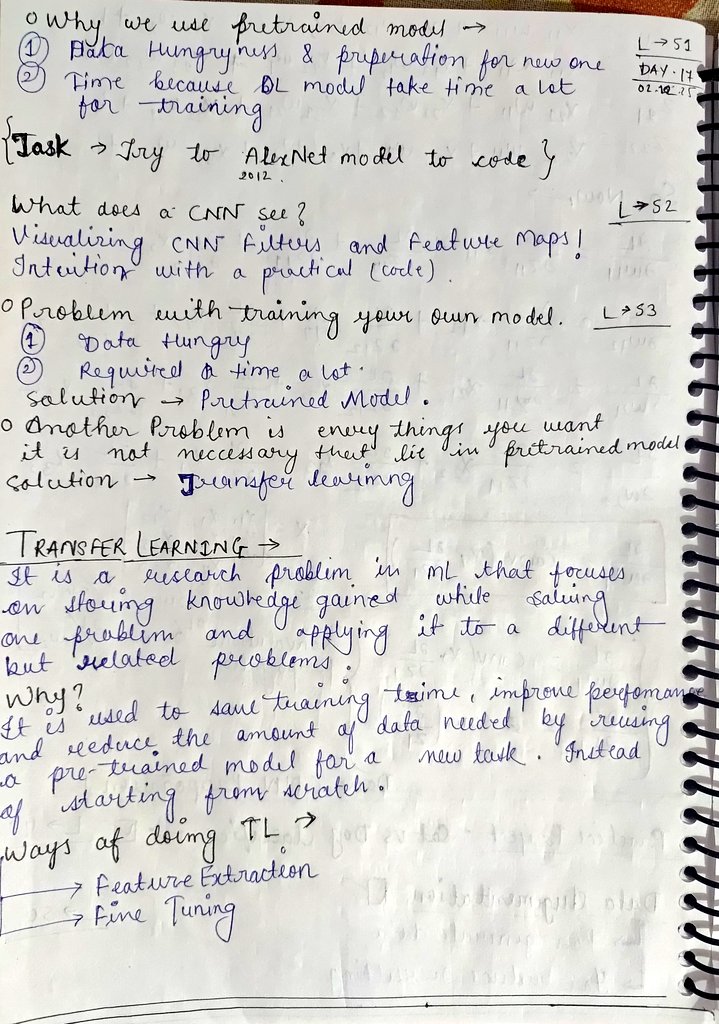 o Why we use pretrained model →
L → S1
① Data Hungryness & preperation for new one
DAY · 17
② Time because DL model take time a lot
for training
{Task → Try to AlexNet model to code}
2012
What does a CNN see?
L → S2
Visualizing CNN Filters and Feature Maps!
Intuition with a practical (code)
o Problem with training your own model.
L → S3
① Data Hungry
② Required a time a lot.
Solution → Pretrained Model.
o Another Problem is every things you want
it is not neccessary that lie in pretrained model
Solution → Transfer learning
TRANSFER LEARNING →
It is a research problem in ML that focuses
on storing knowledge gained while solving
one problem and applying it to a different
but related problems.
Why?
It is used to save training time, improve perfomance
and reduce the amount of data needed by reusing
a pre-trained model for a new task. Instead
of starting from scratch.
Ways of doing TL →
→ Feature Extraction
→ Fine Tuning